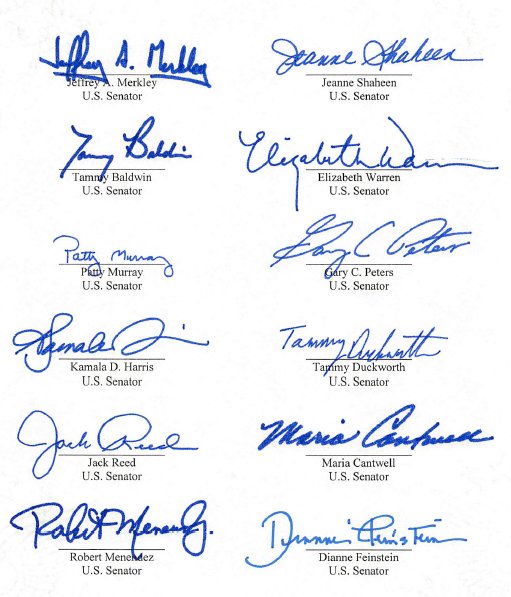 Jeffrey A. Merkley Jeanne Shaheen
Jeffrey A. Merkley Jeanne Shaheen
U.S. Senator U.S. Senator
Tammy Baldwin Elizabeth Warren
Tammy Baldwin Elizabeth Warren
U.S. Senator U.S. Senator
Patty Murray Gary C Peters
Patty Murray Gary C. Peters
U.S. Senator U.S. Senator
Kamala Tammy Duckworth
Kamala D. Harris Tammy Duckworth
U.S. Senator U.S. Senator
Jack Reed Maria Cantwell
Jack Reed Maria Cantwell
U.S. Senator U.S. Senator
Robert Menendez Dianne Feinstein
Robert Menendez Dianne Feinstein
U.S. Senator U.S. Senator